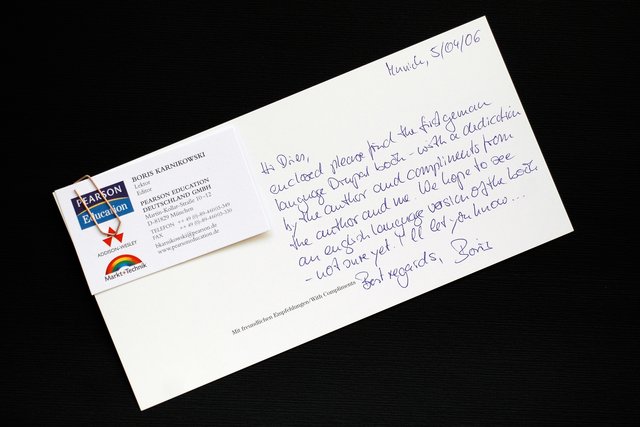 Munich, 5/04/06
Hi Dries,
enclosed please find the first german
language Drupal book - with a dedication
by the author and compliments from
the author and me. We hope to see
an english language version of the book
- not sure yet. I'll let you know...
Best regards, Boris
Mit freundlichen Empfehlungen/With Compliments
PEARSON
Education
ADDISON-WESLEY
Markt+Technik
BORIS KARNIKOWSKI
Lektor
Editor
PEARSON EDUCATION
DEUTSCHLAND GMBH
Martin-Kollar-Straße 10–12
D-81829 München
TELEFON ++49 (0)-89-46003-349
FAX ++49 (0)-89-46003-330
bkarnikowski@pearson.de
www.pearsoneducation.de